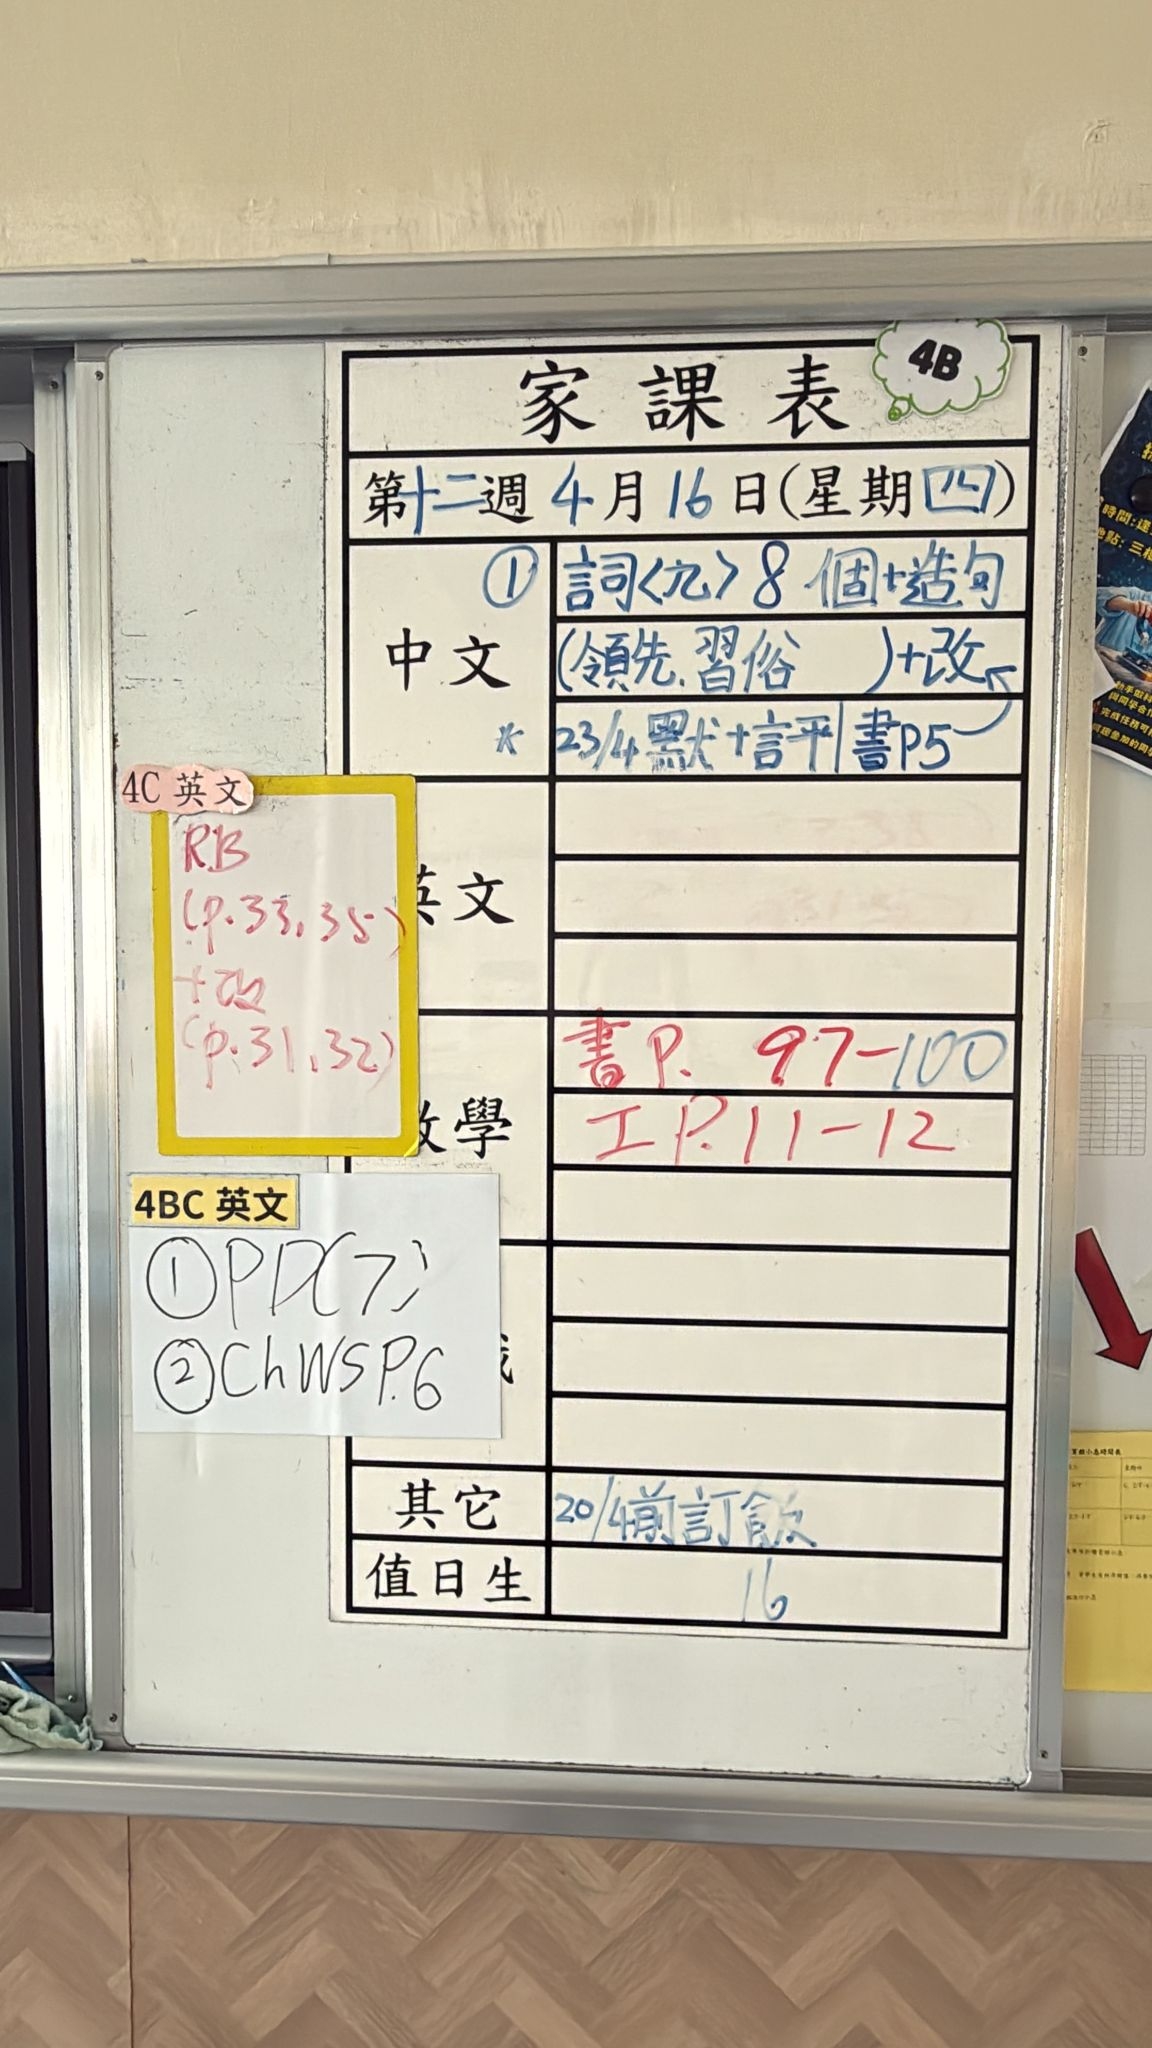 家課表
4B
第十二週 4月16日(星期四)
中文
① 詞<九> 8 個+造句
(領先、習俗 )+改
* 23/4 默+評 | 書P5
英文
4C 英文
RB
(p.33,35)
+改
(p.31,32)
數學
書P. 97-100
工 P.11-12
4BC 英文
①PD(7)
②ChWS P.6
其它
20/4前訂飯
值日生
16